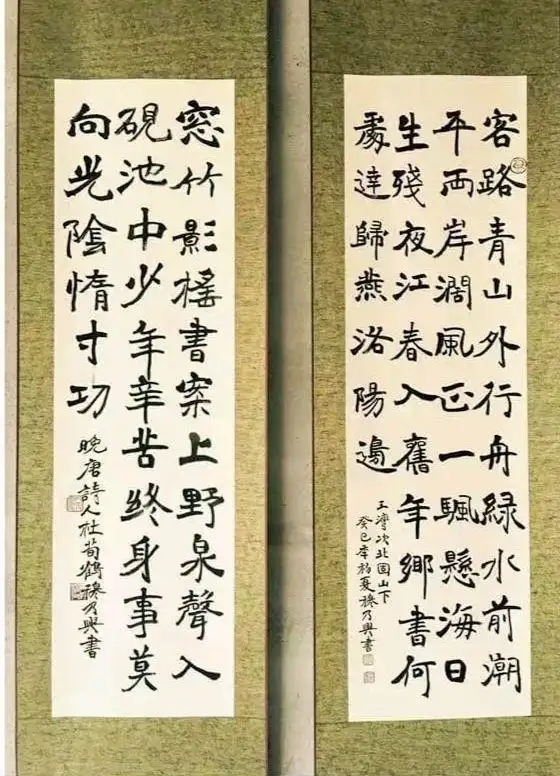 客路青山外行舟綠水前潮
平兩岸闊風正一颿懸海日
生殘夜江春入舊年鄉書何
處達歸燕洛陽邊
王灣次北固山下
癸巳年初夏穆乃興書
窓竹影搖書案上野泉聲入
硯池中少年辛苦終身事莫
向光陰惰寸功
晚唐詩人杜荀鶴穆乃興書